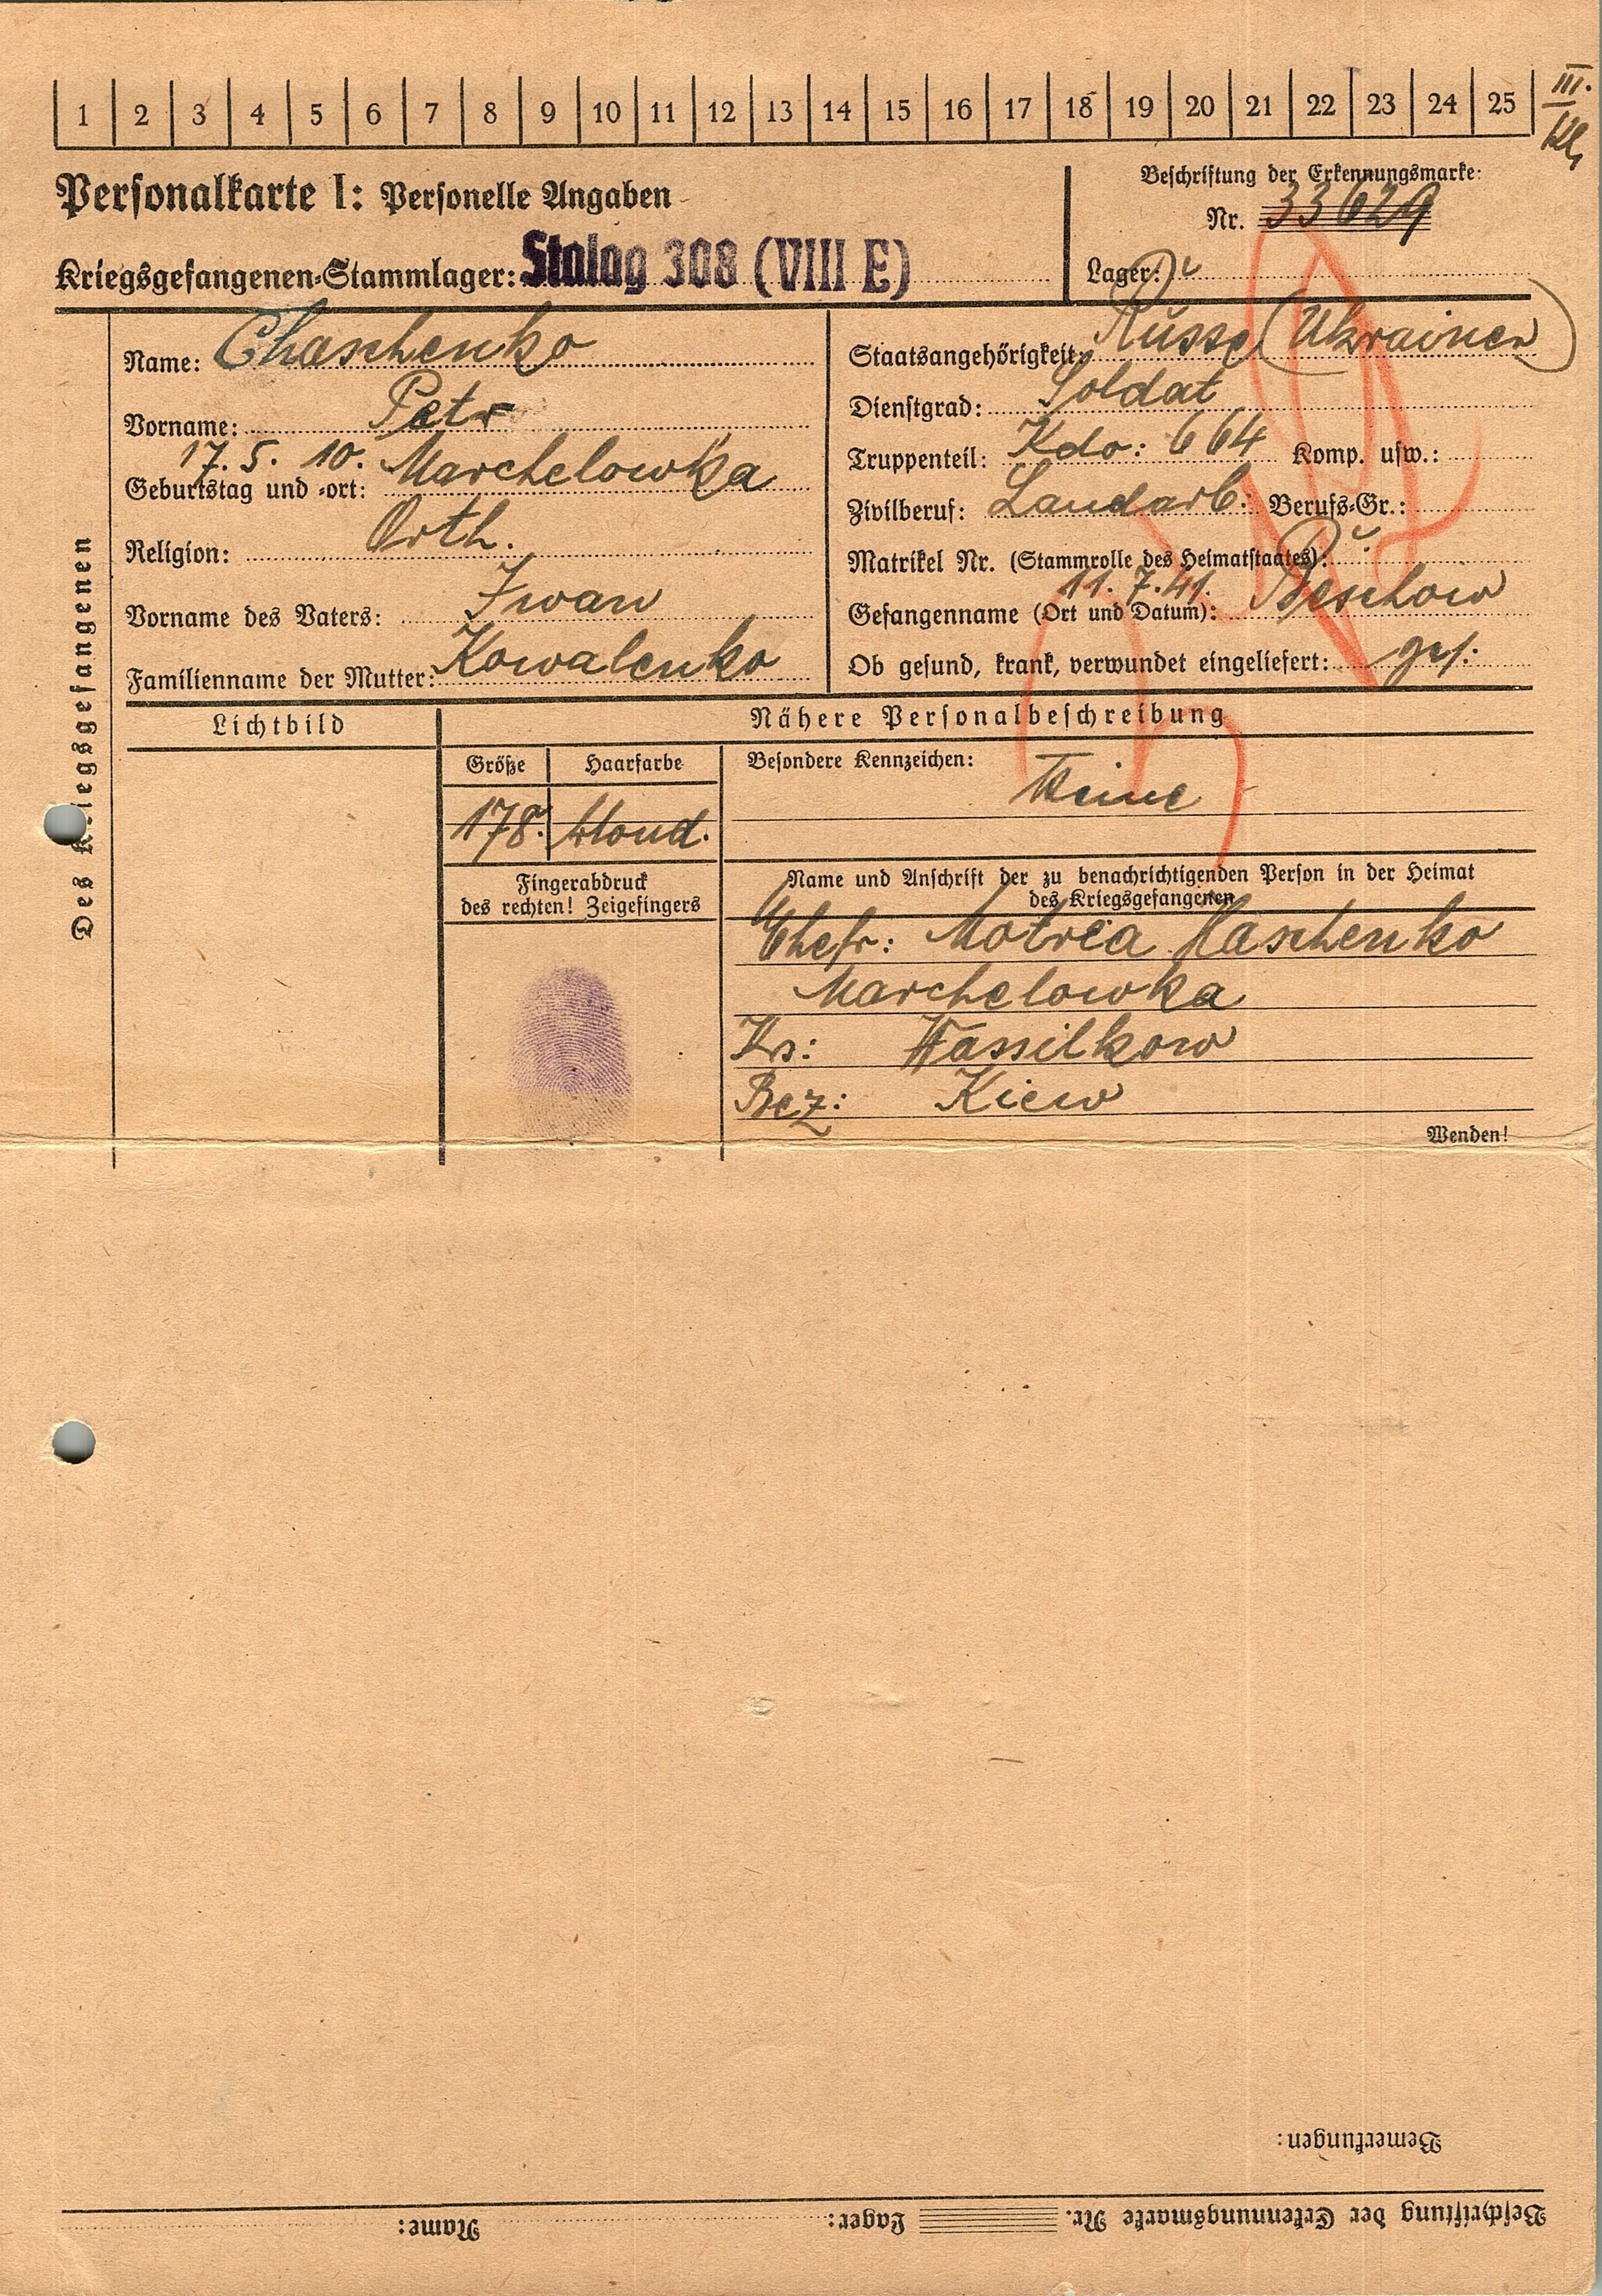 1 2 3 4 5 6 7 8 9 10 11 12 13 14 15 16 17 18 19 20 21 22 23 24 25
III.
Personalkarte I: Personelle Angaben
Beschriftung der Erkennungsmarke:
Nr. 33629
Kriegsgefangenen-Stammlager: Stalag 308 (VIII E)
Lager:
Des Kriegsgefangenen
Name: Chaschenko
Vorname: Petr
Geburtstag und -ort: 17. 5. 10. Marchelowka
Religion: Orth.
Vorname des Vaters: Iwan
Familienname der Mutter: Kowalenko
Staatsangehörigkeit: Russe (Ukrainer)
Dienstgrad: Soldat
Truppenteil: Kdo: 664 Komp. usw.:
Zivilberuf: Landarb. Berufs-Gr.:
Matrikel Nr. (Stammrolle des Heimatstaates):
Gefangennahme (Ort und Datum): 11. 7. 41. Beschow
Ob gesund, krank, verwundet eingeliefert: ges.
Lichtbild
Nähere Personalbeschreibung
Größe Haarfarbe
178. blond.
Besondere Kennzeichen: Keine
Fingerabdruck
des rechten! Zeigefingers
Name und Anschrift der zu benachrichtigenden Person in der Heimat
des Kriegsgefangenen
Ehefr: Motrea Haschenko
Marchelowka
Krs: Wassilkow
Bez: Kiew
Wenden!
Bemerkungen:
Beschriftung der Erkennungsmarke Nr. Lager: Name: